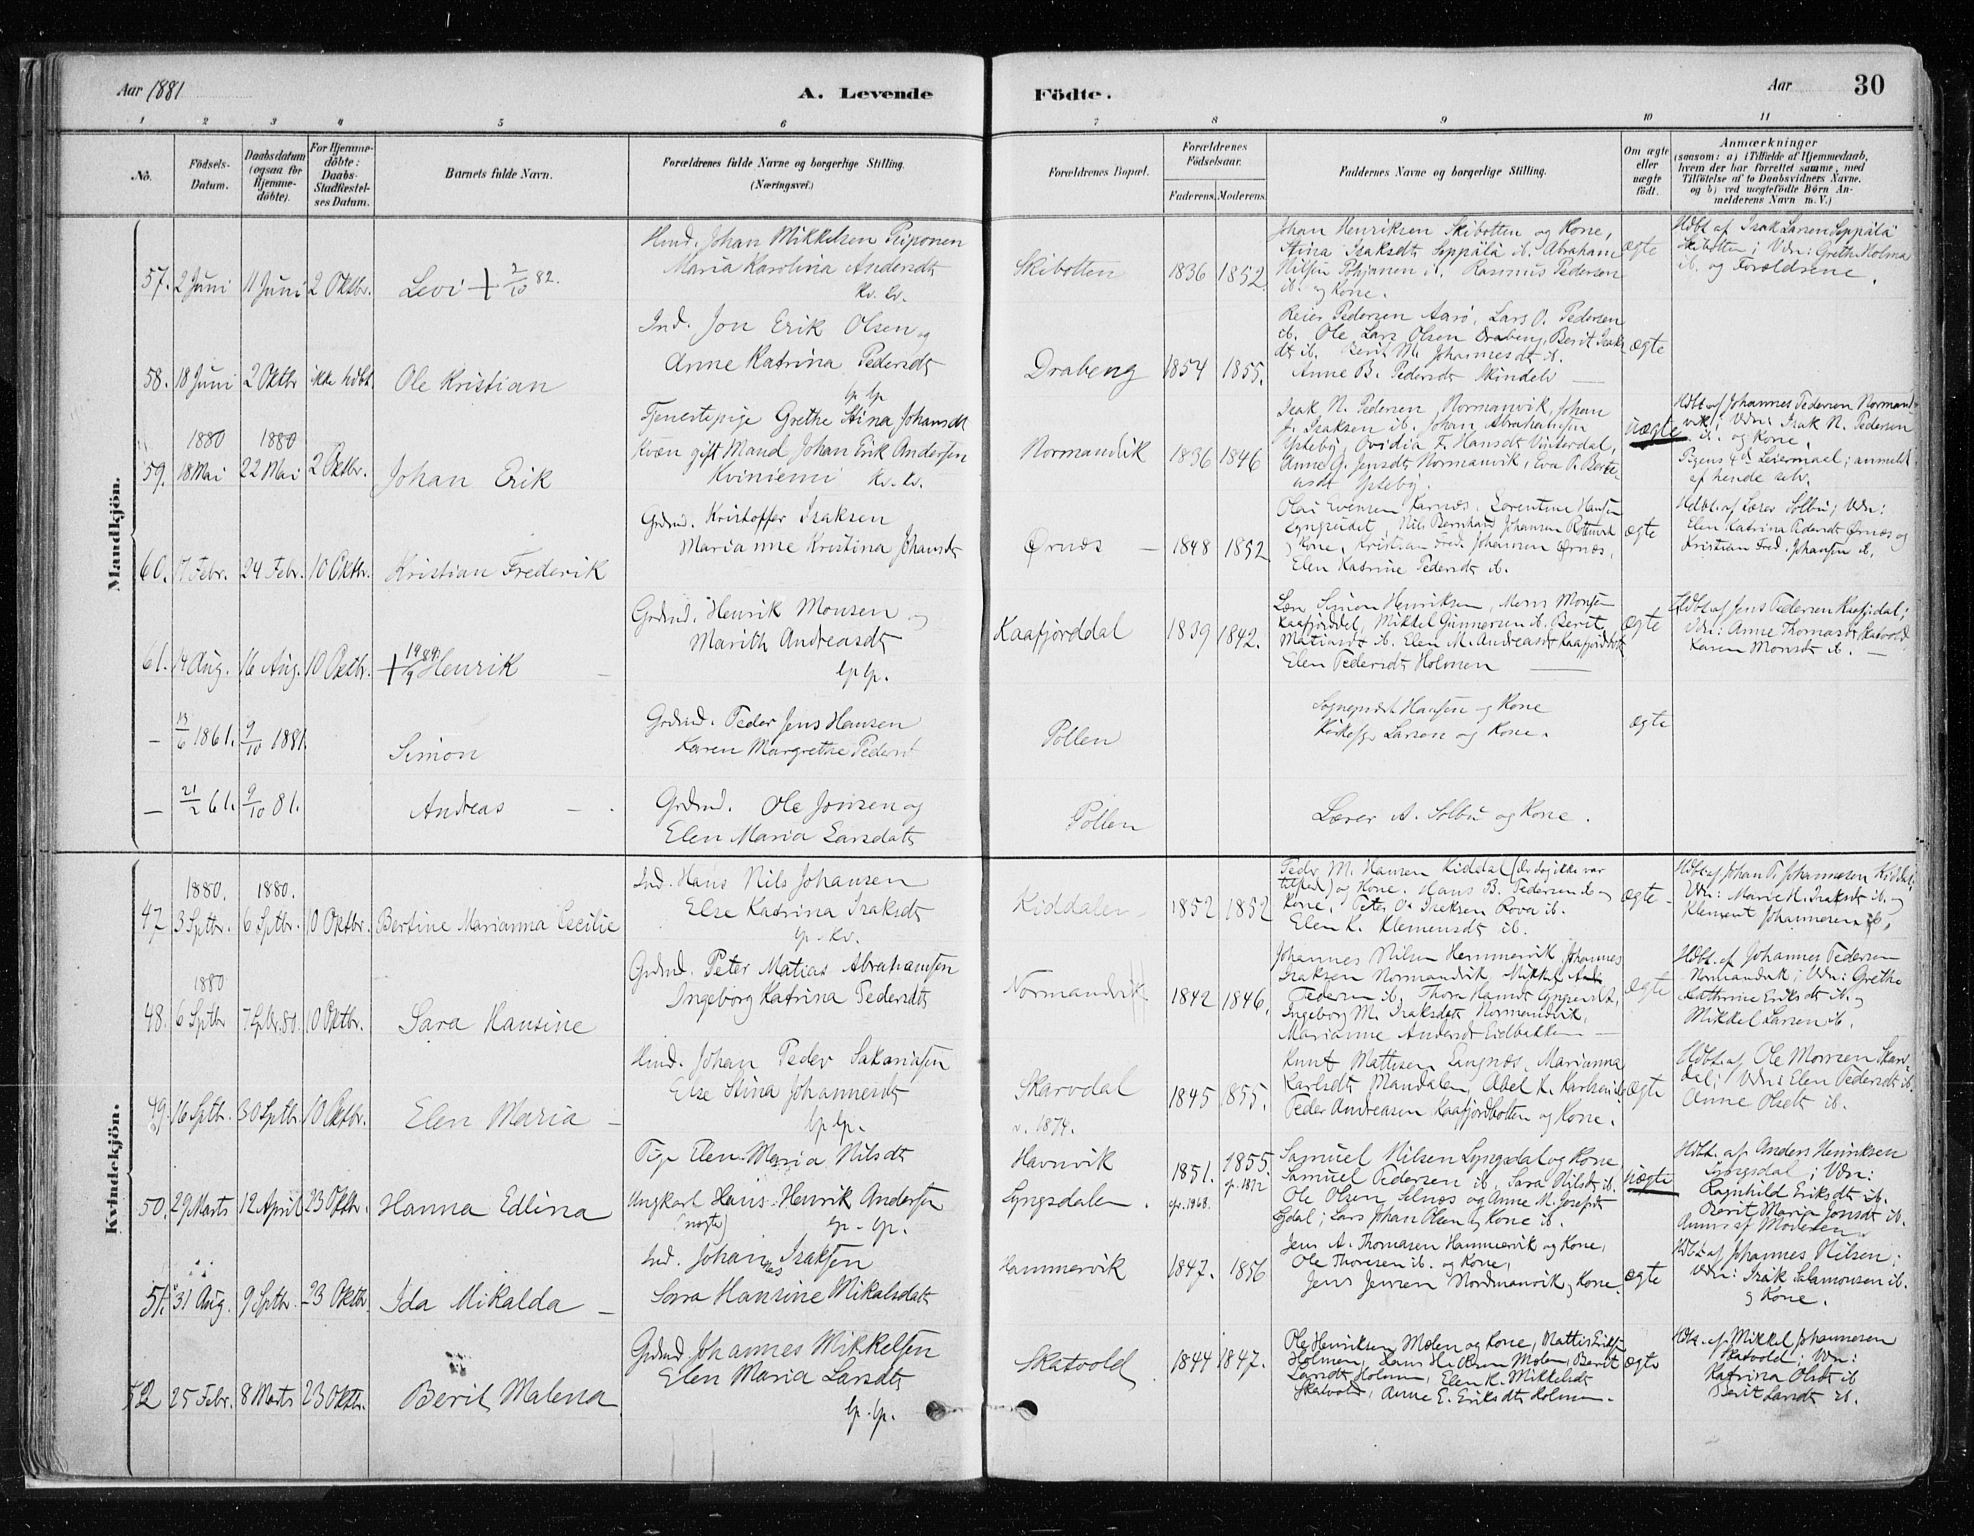 Aar 1881
A. Levende
Födte.
Aar
30
1 2 3 4 5 6 7 8 9 10 11
No.
Födsels-
Datum.
Daabsdatum
(ogsaa for
Hjemme-
döbte).
For Hjemme-
döbte:
Daabs-
Stadfæstel-
ses Datum.
Barnets fulde Navn.
Forældrenes fulde Navne og borgerlige Stilling.
(Næringsvei.)
Forældrenes Bopæl.
Forældrenes
Födselsaar.
Faderens. Moderens.
Faddernes Navne og borgerlige Stilling.
Om ægte
eller
uægte
födt.
Anmærkninger
(saasom: a) i Tilfælde af Hjemmedaab,
hvem der har forrettet samme, med
Tilföielse af to Daabsvidners Navne,
og b) ved uægtefödte Börn An-
melderens Navn m. V.)
Mandkjön.
57. 2 Juni 11 Juni 2 Oktbr. Levi + 2/10 82.
Hmd. Johan Mikkelsen Peiponen
Maria Karolina Andersdt
kv. kv.
Skibotten 1836 1852
Johan Henriksen Skibotten og Kone,
Stina Isaksdt Seppälä ib. Abraham
Nilsen Pohjanen ib. Rasmus Pedersen
ib. og Kone.
ægte
Hdbt. af Isak Larsen Seppälä
Skibotten; Vdn: Grethe Holma
ib. og Forældrene.
58. 18 Juni 2 Oktbr ikke hdbt Ole Kristian
Ind. Jon Erik Olsen og
Anne Katrina Pedersdt
lp lp
Drabeng 1854 1855.
Reier Pedersen Aarö, Lars O. Pedersen
ib. Ole Lars Olsen Drabeng, Berit Isak
dt ib. Berit M. Johannesdt ib.
Anne B. Pedersdt Skindelv
ægte
59. 1880 18 Mai 1880 22 Mai 2 Oktbr. Johan Erik
Tjenestepige Grethe Stina Johansdt
Kvæn gift Mand Johan Erik Andersen
Kviniemi kv. kv.
Normandvik 1836 1846
Isak N. Pedersen Normanvik, Johan
J. Isaksen ib. Johan Abrahamsen
Ysteby, Ovidia F. Hansdt Vinterdal,
Anne G. Jensdt Normanvik, Eva P.
Ysteby.
uægte
Hdbt af Johannes Pedersen Normand
vik; Vdn: Isak N. Pedersen
ib. og Kone.
Pigens 4de Leiermaal; anmeldt
af hende selv.
60. 17 Febr. 24 Febr. 10 Oktbr. Kristian Frederik
Grdmd. Kristoffer Isaksen
Marianne Kristina Johansdt
Ørnæs 1848 1852
Olai Evensen Karnæs, Lorentine Hansen
Lyngseidet, Nils Bernhard Johansen
og Kone, Kristian Fred. Johansen Ørnæs,
Elen Katrine Pedersdt ib.
ægte
Hdbt. af Lærer Solbu; Vdn:
Elen Katrina Pedersdt Ørnæs og
Kristian Fred. Johansen ib.
61. 14 Aug. 16 Aug. 10 Oktbr. + Henrik
Grdmd. Henrik Monsen og
Marith Andreasdt
lp lp.
Kaafjorddal 1839 1842.
Simon Henriksen, Mons Monsen
Kaafjorddal, Mikkel Gunnersen ib. Berit
Matiasdt ib. Elen M. Andreasdt Kaafjorddal
Elen Pedersdt Holmen
ægte
Hdbt. af Jens Pedersen Kaafjdal;
Vdn: Anne Thomasdt, Skatvold,
Karen Monsdt ib.
— 13/6 1861. 9/10 1881. Simon
Grdmd. Peder Jens Hansen
Karen Margrethe Pedersdt
Pollen
Sogneprest Hansen og Kone
Kirkesgr Larsen og Kone.
ægte
— 21/2 61. 9/10 81. Andreas
Grdmd. Ole Jonsen og
Elen Maria Larsdatr
Pollen
Lærer A. Solbu og Kone.
Kvindekjön.
47 1880. 3 Sptbr. 1880. 6 Sptbr. 10 Oktbr. Bertine Marianna Cecilie
Ind. Hans Nils Johansen
Else Katrina Isaksdt
lp. kv.
Kiddalen 1852 1852
Peder M. Hansen Kiddal (der dog ikke var
tilsted) og Kone. Hans B. Pedersen ib og
Kone, Peter O. Isaksen Rova ib.
Elen K. Klemensdt ib.
ægte
Hdbt. af Johan P. Johannesen Kiddal;
Vdn: Marie H. Isaksdt ib. og
Klement Johannesen ib.
48. 1880 6 Sptbr 7 Sptbr. 80. 10 Oktbr. Sara Hansine
Grdmd. Peter Matias Abrahamsen
Ingeborg Katrina Pedersdt
Normandvik 1842 1846.
Johannes Nilsen Hemmervik, Johannes
Isaksen Normandvik, Mikkel
Pedersen ib, Hansdt
Ingeborg M. Isaksdt Normandvik,
Marianne Andersdt Eidbakken
ægte
Hdbt. af Johannes Pedersen
Normandvik; Vdn: Grethe
Kathrine Eriksdt ib. og
Mikkel Larsen ib.
49. 16 Sptbr. 30 Sptbr. 10 Oktbr. Elen Maria
Hmd. Johan Peder Sakariasen
Else Stina Johannesdt
lp lp.
Skarvdal
v. 1874. 1845 1855.
Knut Mattisen Langnæs, Marianna
Karlsdt Mandalen, Abel K. Karlsen ib
Peder Andreasen Kaafjordbotten og Kone.
ægte
Hdbt. af Ole Monsen Skar
dal; Vdn: Elen Pedersdt ib.
Anne Olsdt ib.
50. 29 Marts 12 April 23 Oktbr. Hanna Edlina
Pige Elen Maria Nilsdt
Ungkarl Hans Henrik Andersen
lp. lp.
Havnvik
Lyngsdalen. 1851. 1855.
Samuel Nilsen Lyngsdal og Kone
Samuel Pedersen ib, Sara Nilsdt ib.
Ole Olsen Selnæs og Anne M. Josefsdt
Lgdal; Lars Johan Olsen og Kone ib.
uægte
Hdbt. af Anders Henriksen
Lyngsdal; Vdn:
Ragnhild Eriksdt ib.
Berit Maria Jonsdt ib.
Anm. af Moderen
51. 31 Aug. 9 Sptbr. 23 Oktbr. Ida Mikalda
Ind. Johannes Isaksen
Sara Hansine Mikalsdatr
Hammervik 1847. 1856
Jens A. Thomasen Hammervik og Kone,
Ole Thoresen ib. og Kone,
Jens Jensen Nordmanvik og Kone.
ægte
Hdbt. af Johannes Nilsen;
Vdn: Isak Salamonsen ib.
og Kone.
52 25 Febr. 8 Marts 23 Oktbr. Berit Malena
Grdmd Johannes Mikkelsen
Elen Maria Larsdt
lp. lp.
Skatvold 1844 1847.
Ole Henriksen Molen og Kone, Mattis Eriksen
Holmen, Hans Molen, Berit
Larsdt Holmen, Elen K. Mikkelsdt
Skatvold, Anne E. Eriksdt Holmen.
ægte
Hdb. af Mikkel Johannesen
Skatvold; Vdn:
Katrina Olsdt ib
Berit Larsdt ib.